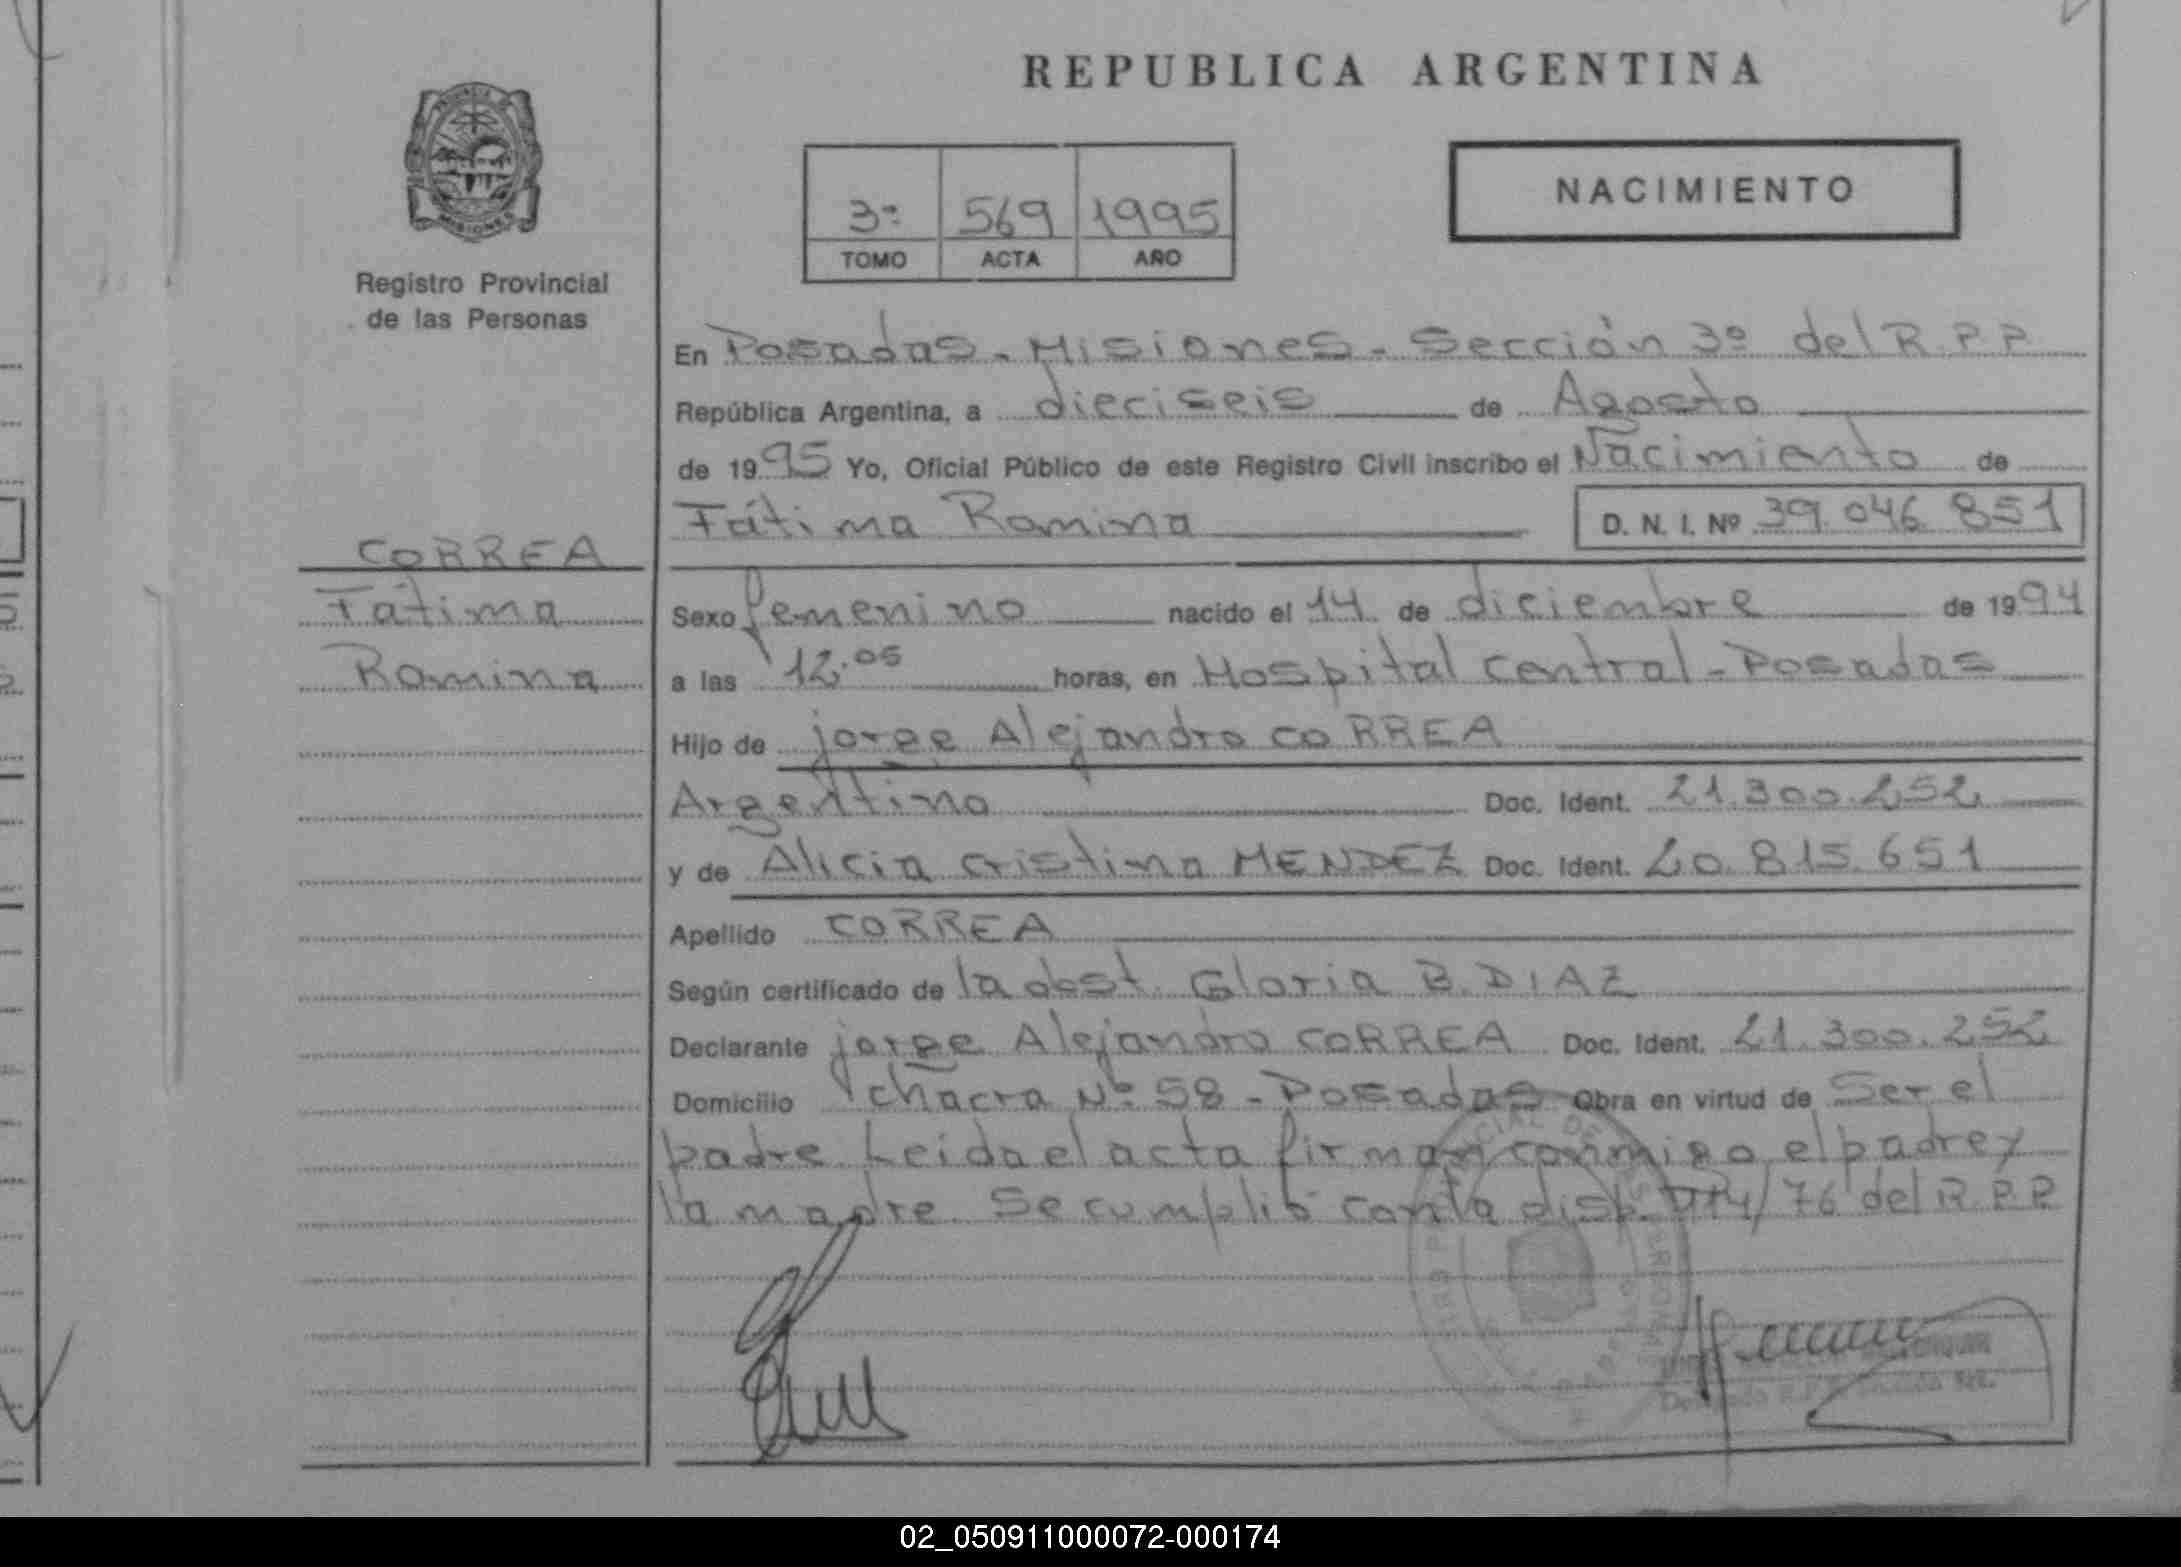 REPUBLICA ARGENTINA
PROVINCIA DE
MISIONES
Registro Provincial
de las Personas
3º 569 1995
TOMO ACTA AÑO
NACIMIENTO
En Posadas - Misiones - Sección 3º del R.P.P.
República Argentina, a dieciseis de Agosto
de 1995 Yo, Oficial Público de este Registro Civil inscribo el Nacimiento de
Fátima Romina D. N. I. Nº 39.046.851
CORREA
Fátima
Romina
Sexo femenino nacido el 14 de diciembre de 1994
a las 12.05 horas, en Hospital Central - Posadas
Hijo de jorge Alejandro CORREA
Argentino Doc. Ident. 21.300.252
y de Alicia Cristina MENDEZ Doc. Ident. 20.815.651
Apellido CORREA
Según certificado de la obst. Gloria B. DIAZ
Declarante jorge Alejandro CORREA Doc. Ident. 21.300.252
Domicilio chacra Nº 58 - Posadas Obra en virtud de Ser el
padre Leida el acta firman conmigo el padre y
la madre. Se cumplió con la disp. /76 del R.P.P.
02_050911000072-000174